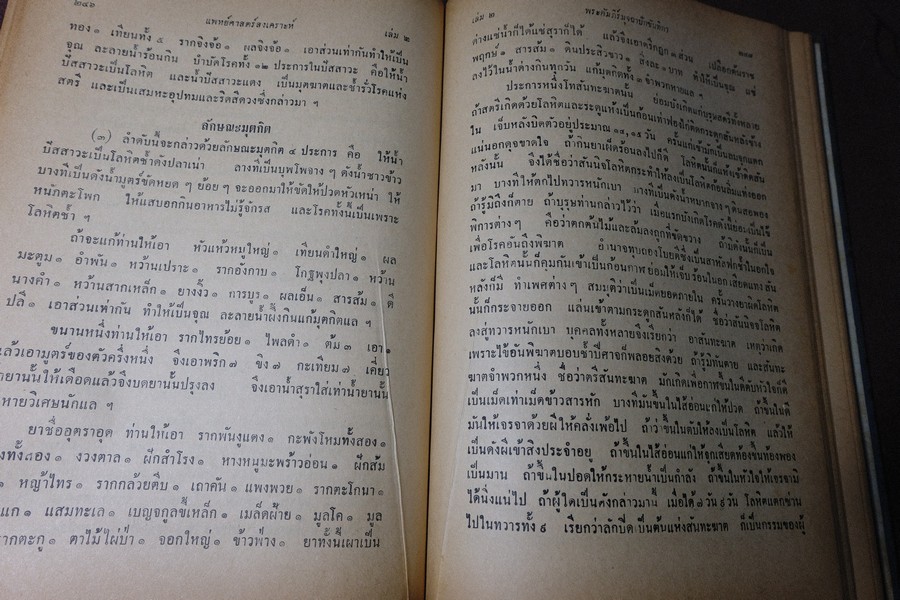 ๒๔๖
แพทย์ศาสตร์สงเคราะห์
เล่ม ๒
ทอง ๑ เทียนทั้ง ๕ รากจิงจ้อ ๑ ผลจิงจ้อ ๑ เอาส่วนเท่ากันทำให้เป็น
จุณ ละลายน้ำร้อนกิน บำบัดโรคทั้ง ๑๒ ประการในปัสสาวะ คือให้น้ำ
ปัสสาวะเป็นโลหิต และน้ำปัสสาวะแดง เป็นมุตฆาตและช้ำรั่วโรคแห่ง
สตรี และเป็นเสมหะอุปทมและริดสีดวงซึ่งกล่าวมา ฯ
ลักษณะมุตกิต
(๓) ลำดับนี้จะกล่าวด้วยลักษณะมุตกิต ๔ ประการ คือ ให้น้ำ
ปัสสาวะเป็นโลหิตช้ำดังปลาเน่า ลางทีเป็นบุพโพจาง ๆ ดังน้ำซาวข้าว
บางทีเป็นดังน้ำมูตร์ขัดหยด ๆ ย้อย ๆ จะออกมาให้ขัดให้ปวดหัวเหน่า ให้
หนักตะโพก ให้แสบอกกินอาหารไม่รู้จักรส และโรคทั้งนี้เป็นเพราะ
โลหิตช้ำ ฯ
ถ้าจะแก้ท่านให้เอา หัวแห้วหมูใหญ่ ๑ เทียนดำใหญ่ ๑ ผล
มะตูม ๑ อำพัน ๑ หว้านเปราะ ๑ รากอังกาบ ๑ โกฐพุงปลา ๑ หว้าน
นางคำ ๑ หว้านสากเหล็ก ๑ ยางงิ้ว ๑ การบูร ๑ ผลเอ็น ๑ สารส้ม ๑ ดี
ปลี ๑ เอาส่วนเท่ากัน ทำให้เป็นจุณ ละลายน้ำผึ้งกินแก้มุตกิตแล ฯ
ขนานหนึ่งท่านให้เอา รากไทรย้อย ๑ ไพลดำ ๑ ต้ม ๓ เอา ๑
แล้วเอามูตร์ของตัวครึ่งหนึ่ง จึงเอาพริก ๗ ขิง ๗ กะเทียม ๗ เคี่ยว
ยานั้นให้เดือดแล้วจึงบดยานั้นปรุงลง จึงเอาน้ำสุราใส่เท่าน้ำยานั้น
หายวิเศษนักแล ฯ
ยาชื่ออุตราอุต ท่านให้เอา รากพันงูแดง ๑ กะพังโหมทั้งสอง ๑
ทั้งสอง ๑ งวงตาล ๑ ผักสำโรง ๑ หางหนูมะพร้าวอ่อน ๑ ฝักส้ม
๑ หญ้าไทร ๑ รากกล้วยตีบ ๑ เถาคัน ๑ แพงพวย ๑ รากตะโกนา ๑
แก ๑ แสมทะเล ๑ เบญจกูลขี้เหล็ก ๑ เมล็ดฝ้าย ๑ มูลโค ๑ มูล
รากตะกู ๑ ตาไม้ไผ่ป่า ๑ จอกใหญ่ ๑ ข้าวฟ่าง ๑ ยาทั้งนี้เผาเป็น
เล่ม ๒
พระคัมภีร์มุจฉาปักขันทิกา
ด่างแช่น้ำก็ได้แช่สุราก็ได้ แล้วจึงเอาตรีกฏุก ๓ ส่วน เปลือกต้นราช
พฤกษ์ ๑ สารส้ม ๑ ดินประสิวขาว ๑ สิ่งละ ๑ บาท ทำให้เป็นจุณ แช่
ลงไว้ในน้ำด่างกินทุกวัน แก้มุตกิตทั้ง ๓ จำพวกหายแล ฯ
ประการหนึ่งโทสันทะฆาตนั้น ย่อมบังเกิดแก่บุรุษสตรีทั้งหลาย
ถ้าสตรีเกิดด้วยโลหิตและระดูแห้งเป็นก้อนเท่าฟองไก่ติดกระดูกสันหลังข้าง
ใน เจ็บหลังบิดตัวอยู่ประมาณ ๑๔, ๑๕ วัน
แน่นอกดุจขาดใจ ถ้ากินยาเผ็ดร้อนลงไปก็ดี
หลังนั้น จึงได้ชื่อว่าสันนิจโลหิต
มา บางทีให้ตกไปทวารหนักเบา
ถ้ารู้มิถึงก็ตาย ถ้าบุรุษท่านกล่าวไว้ว่า
พิการต่างๆ คือว่าตกต้นไม้และล้มลงถูกที่ขัดขวาง
เพื่อโรคอันถึงพิฆาต
และโลหิตนั้นก็คุมกันเข้าเป็นก้อนกาฬ
หลังก็มี ทำเพศต่างๆ สมมุติว่าเป็นเม็ดยอดภายใน
นั้นก็กระจายออก แล่นเข้าตามกระดูกสันหลังก็ได้ ชื่อว่าสันนิจโลหิต
ลงสู่ทวารหนักเบา บุคคลทั้งหลายจึงเรียกว่า อาสันทะฆาต เหตุว่าเกิด
เพราะไข้อันพิฆาตบอบช้ำปีศาจก็พลอยสิงด้วย ถ้ารู้มิทันตาย และสันทะ
ฆาตจำพวกหนึ่ง ชื่อว่าตรีสันทะฆาต มักเกิดเพื่อกาฬขึ้นในดีตับหัวใจก็ดี
เป็นเม็ดเท่าเม็ดข้าวสารหัก บางทีมันขึ้นในไส้อ่อนะกให้ปวด ถ้าขึ้นในดี
มันให้เจรจาด้วยผีให้คลั่งเพ้อไป ถ้าว่าขึ้นในตับให้ลงเป็นโลหิต แล้วให้
เป็นดังผีเข้าสิงประจำอยู่ ถ้าขึ้นในไส้อ่อนแก้ให้จุกเสียดท้องขึ้นท้องพอง
เป็นมาน ถ้าขึ้นในปอดให้กระหายน้ำเป็นกำลัง ถ้าขึ้นในหัวใจให้เจรจามิ
ได้นิ่งแน่ไป ถ้าผู้ใดเป็นดังกล่าวมานี้ เมื่อได้ ๗ วัน ๙ วัน โลหิตแตกซ่าน
ไปในทวารทั้ง ๙ เรียกว่าลักปิดเป็นต้นแห่งสันทะฆาต ก็เป็นกรรมของผู้